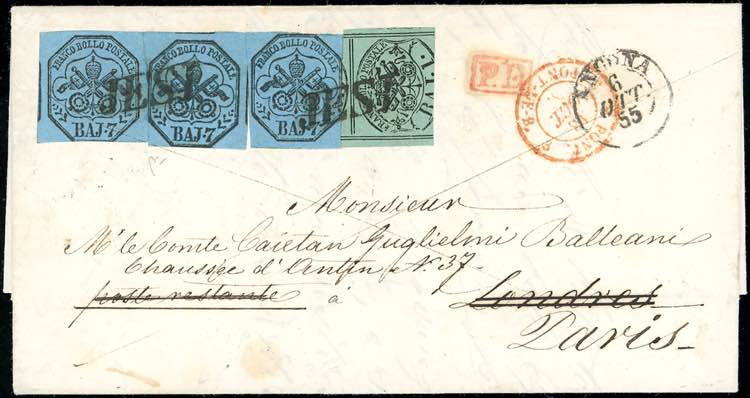 FRANCO BOLLO POSTALE
BAJ-7
FRANCO BOLLO POSTALE
BAJ-7
FRANCO BOLLO POSTALE
BAJ-7
JESI
JESI
P.P.
ANCONA
6
OTT
55
Monsieur
Mr le Comte Caietan Guglielmi Balleani
Chaussée d'Antin No. 37-
poste restante à Londres
Paris-